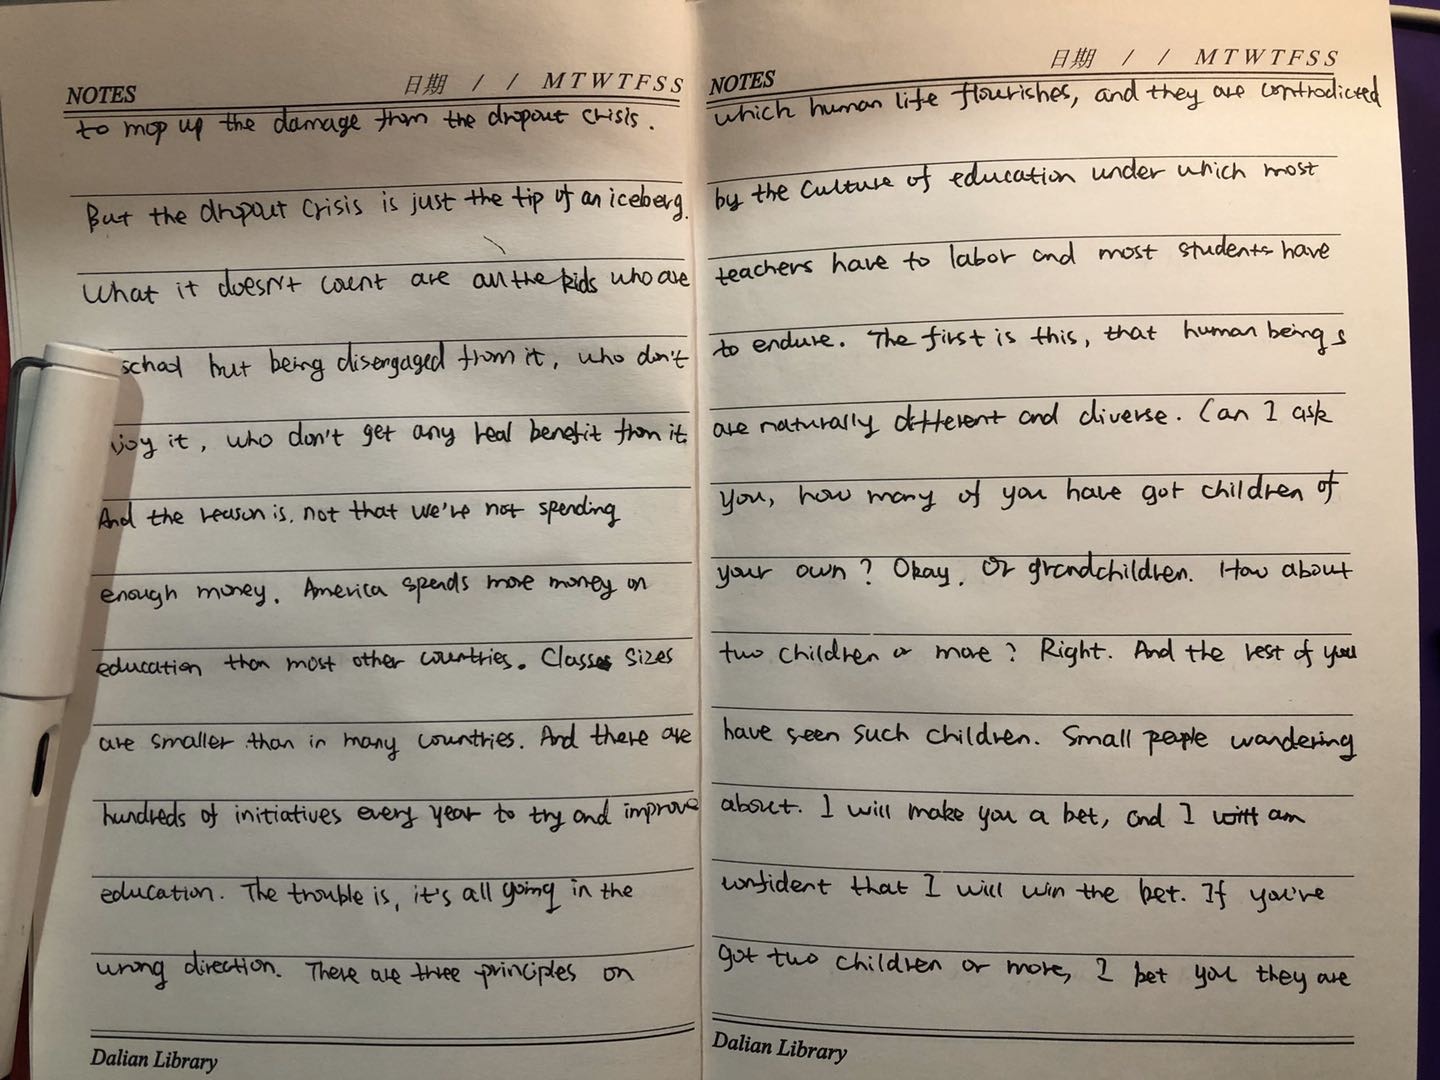 NOTES 日期 / / M T W T F S S
to mop up the damage from the dropout crisis.
But the dropout crisis is just the tip of an iceberg.
What it doesn't count are all the kids who are
school but being disengaged from it, who don't
joy it, who don't get any real benefit from it
And the reason is. not that we're not spending
enough money. America spends more money on
education than most other countries. Class sizes
are smaller than in many countries. And there are
hundreds of initiatives every year to try and improve
education. The trouble is, it's all going in the
wrong direction. There are three principles on
Dalian Library
NOTES 日期 / / M T W T F S S
which human life flourishes, and they are contradicted
by the culture of education under which most
teachers have to labor and most students have
to endure. The first is this, that human beings
are naturally different and diverse. Can I ask
you, how many of you have got children of
your own? Okay. Or grandchildren. How about
two children or more? Right. And the rest of you
have seen such children. Small people wandering
about. I will make you a bet, and I am
confident that I will win the bet. If you've
got two children or more, I bet you they are
Dalian Library